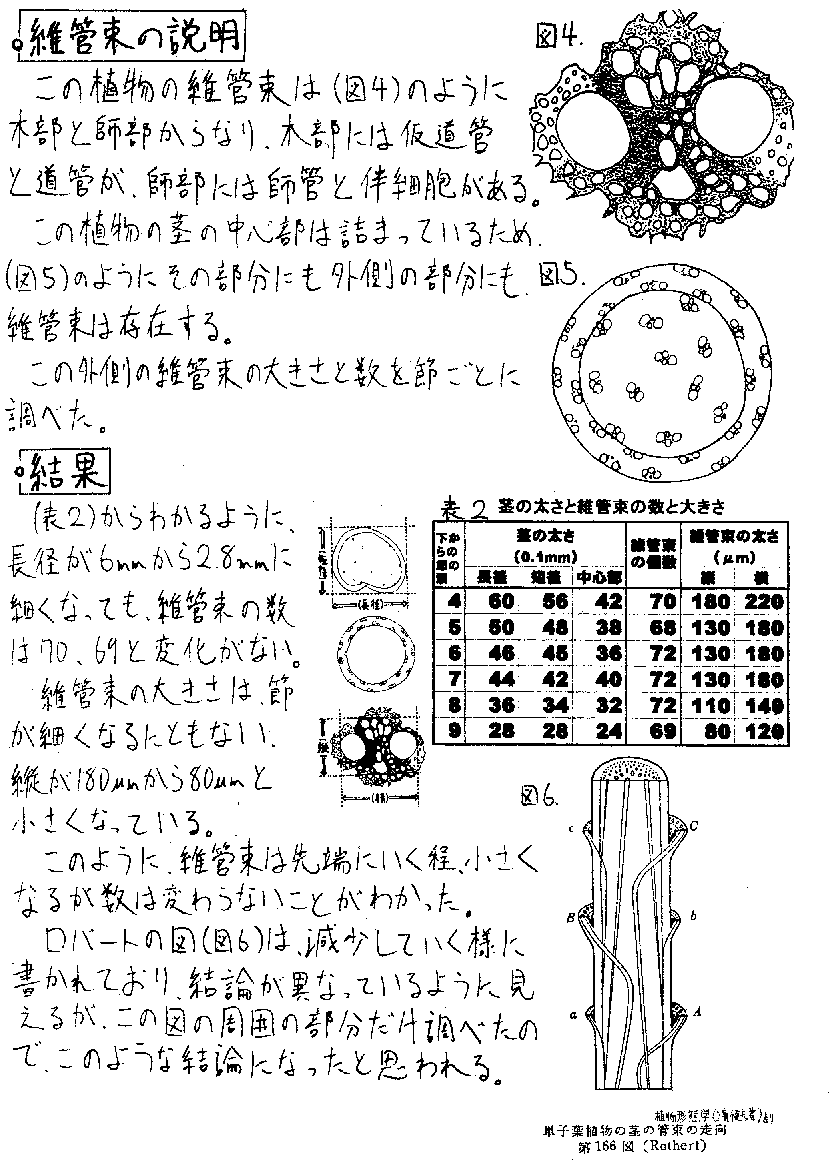 維管束の説明
この植物の維管束は(図4)のように
木部と師部からなり、木部には仮道管
と道管が、師部には師管と伴細胞がある。
この植物の茎の中心部は詰まっているため、
(図5)のようにその部分にも外側の部分にも、
維管束は存在する。
この外側の維管束の大きさと数を節ごとに
調べた。
図4.
図5.
結果
(表2)からわかるように、
長径が6mmから2.8mmに
細くなっても、維管束の数
は70、69と変化がない。
維管束の大きさは、節
が細くなるにともない、
縦が180μmから80μmと
小さくなっている。
このように、維管束は先端にいく程、小さく
なるが数は変わらないことがわかった。
ロバートの図(図6)は、減少していく様に
書かれており、結論が異なっているように見
えるが、この図の周囲の部分だけ調べたの
で、このような結論になったと思われる。
(長径)
表2 茎の太さと維管束の数と大きさ
下から 茎の太さ (0.1mm) 維管束の個数 維管束の太さ (μm)
長径 短径 中心部 縦 横
4 60 56 42 70 180 220
5 50 48 38 68 130 180
6 46 45 36 72 130 180
7 44 42 40 72 130 180
8 36 34 32 72 110 140
9 28 28 24 69 80 120
図6.
c C
B b
a A
より
単子葉植物の茎の管束の走向
第166図 (Rothert)